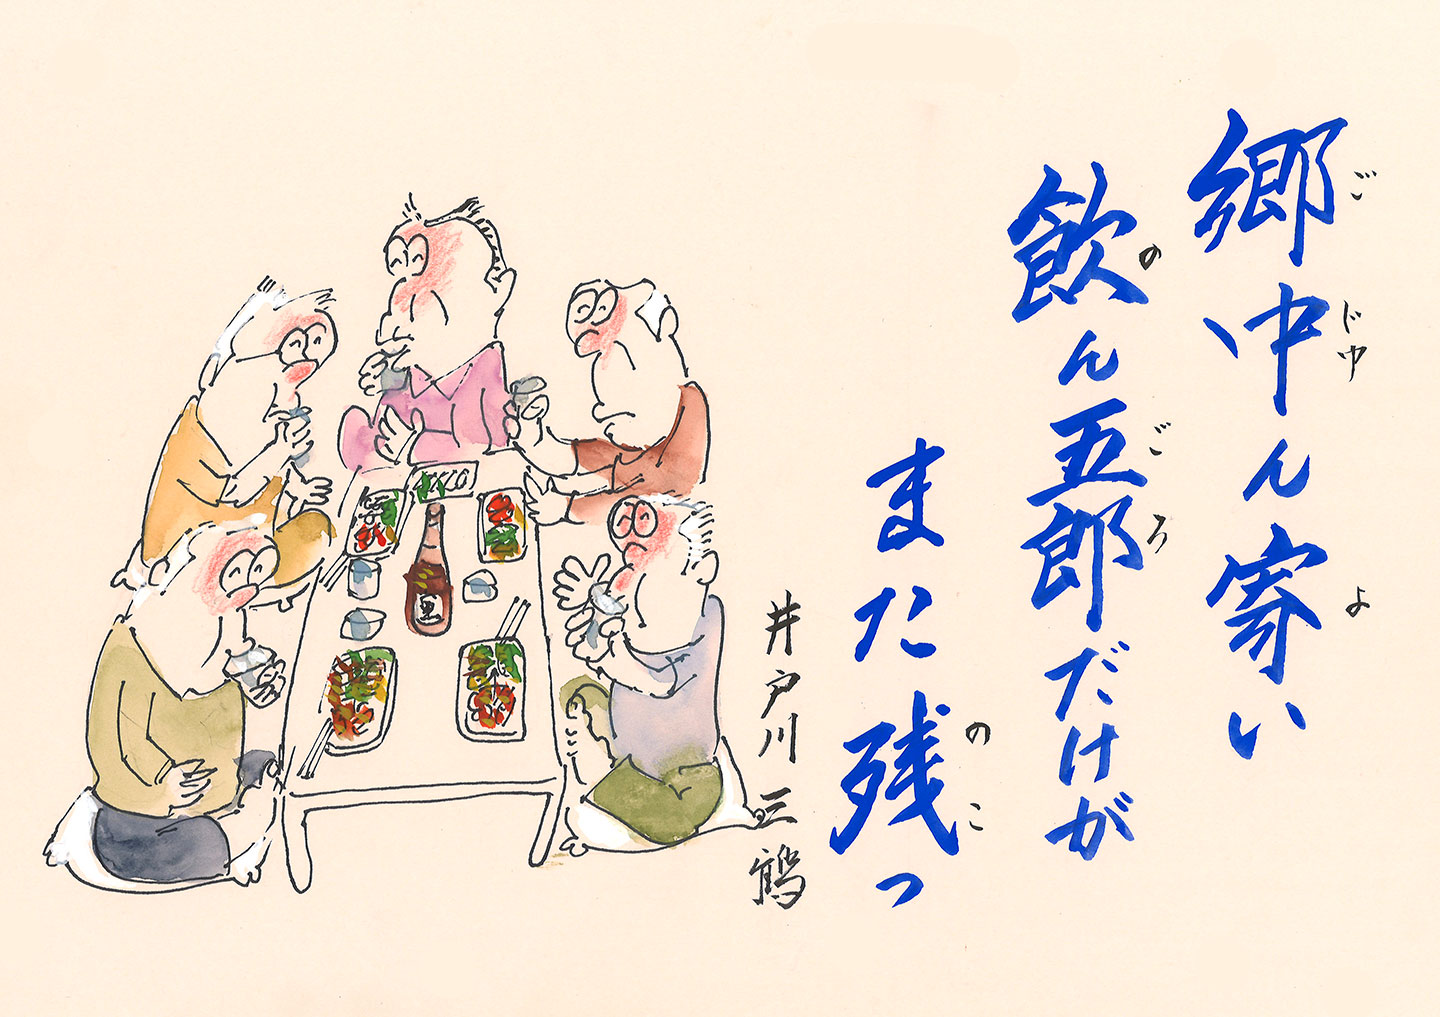 郷中ん寄い
ごじゆ よ
飲ん五郎だけが
の ごろ
また残っ
のこ
井戸川三鶴
黒